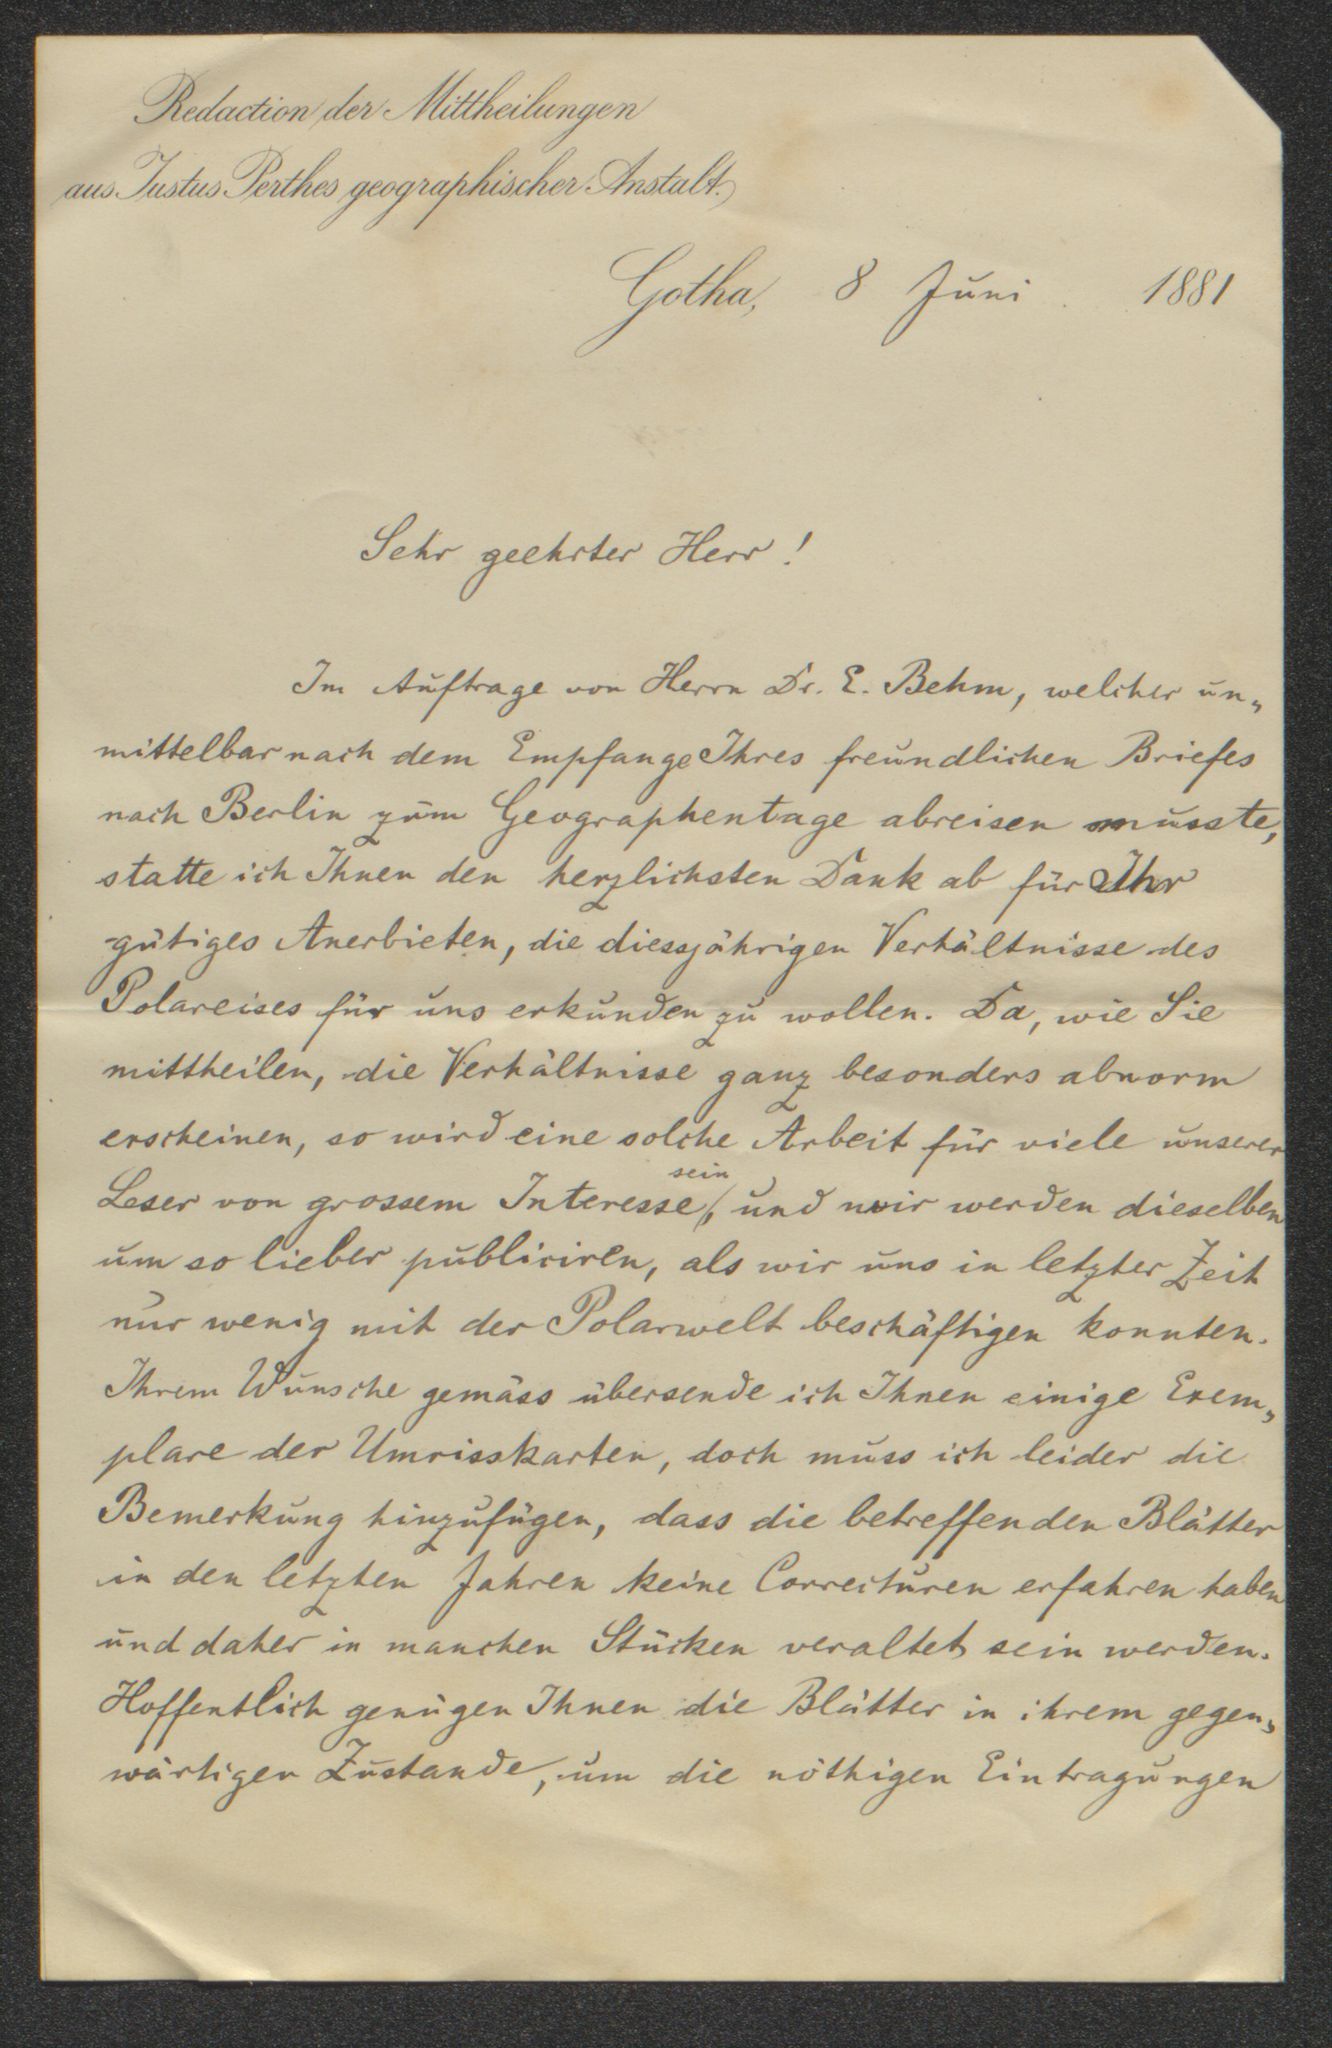 Redaction der Mittheilungen
aus Justus Perthes geographischer Anstalt.
Gotha, 8 Juni 1881
Sehr geehrter Herr!
Im Auftrage von Herrn Dr. E. Behm, welcher un„
mittelbar nach dem Empfange Ihres freundlichen Briefes
nach Berlin zum Geographentage abreisen musste,
statte ich Ihnen den herzlichsten Dank ab für Ihr
gütiges Anerbieten, die diessjährigen Verhältnisse des
Polareises für uns erkunden zu wollen. Da, wie Sie
mittheilen, die Verhältnisse ganz besonders abnorm
erscheinen, so wird eine solche Arbeit für viele unserer
Leser von grossem Interesse sein, und wir werden dieselben
um so lieber publiciren, als wir uns in letzter Zeit
nur wenig mit der Polarwelt beschäftigen konnten.
Ihrem Wunsche gemäss übersende ich Ihnen einige Exem„
plare der Umrisskarten, doch muss ich leider die
Bemerkung hinzufügen, dass die betreffenden Blätter
in den letzten Jahren keine Correcturen erfahren haben
und daher in manchen Stücken veraltet sein werden.
Hoffentlich genügen Ihnen die Blätter in ihrem gegen„
wärtigen Zustande, um die nöthigen Eintragungen